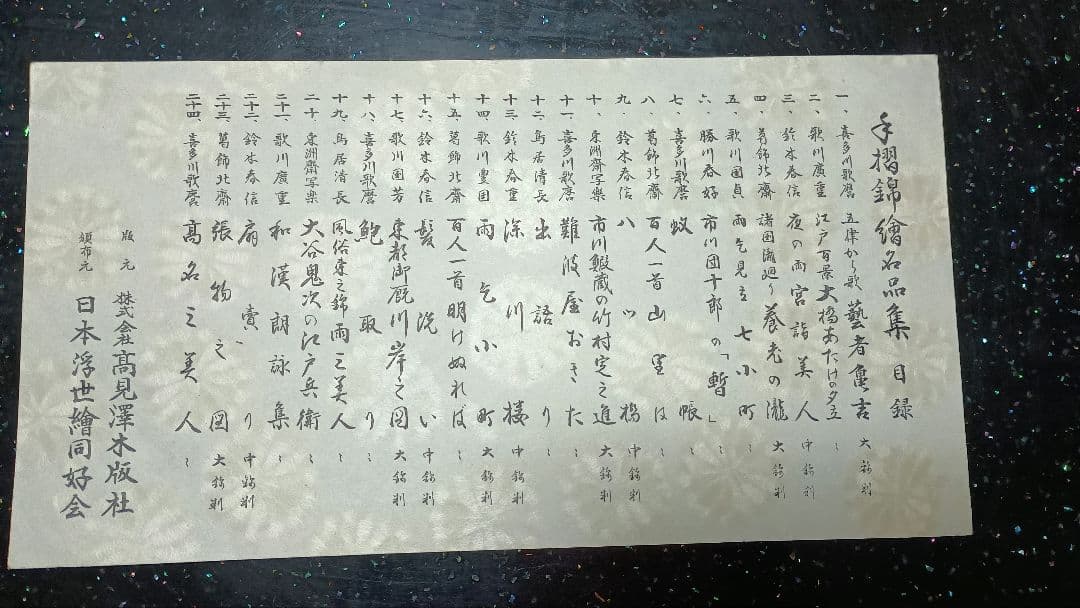 手摺錦繪名品集 目録
一、喜多川歌麿 五津から歌 藝者亀吉 大錦判
二、歌川廣重 江戸百景 大橋あたけの夕立 〃
三、鈴木春信 夜の雨宮詣美人 中錦判
四、葛飾北齋 諸国瀧廻り 養老の瀧 大錦判
五、歌川国貞 雨乞見立七小町 〃
六、勝川春好 市川団十郎の「暫」 〃
七、喜多川歌麿 蚊帳 〃
八、葛飾北齋 百人一首 山里は 〃
九、鈴木春信 八ツ橋 中錦判
十、東洲齋写楽 市川鰕蔵の竹村定之進 大錦判
十一、喜多川歌麿 難波屋おきた 〃
十二、鳥居清長 出語り 〃
十三、鈴木春重 深川楼 中錦判
十四、歌川豊国 雨乞小町 大錦判
十五、葛飾北齋 百人一首 明けぬれば 〃
十六、鈴木春信 髪洗い 中錦判
十七、歌川国芳 東都御厩川岸之図 大錦判
十八、喜多川歌麿 鮑取り 〃
十九、鳥居清長 風俗東之錦 雨三美人 〃
二十、東洲齋写楽 大谷鬼次の江戸兵衛 〃
二十一、歌川廣重 和漢朗詠集 〃
二十二、鈴木春信 扇賣り 中錦判
二十三、葛飾北齋 張物之図 大錦判
二十四、喜多川歌麿 高名之美人 〃
版元 株式会社高見澤木版社
頒布元 日本浮世繪同好会